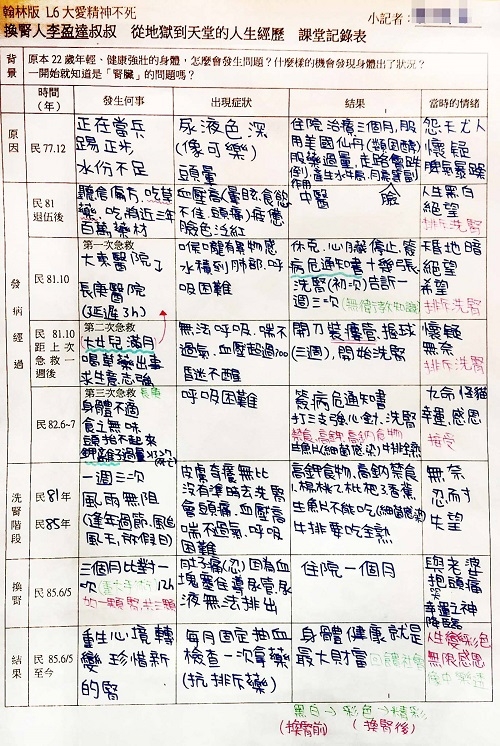 翰林版 L6 大愛精神不死
小記者：
換腎人李盈達叔叔 從地獄到天堂的人生經歷 課堂記錄表
背景
原本 22 歲年輕、健康強壯的身體，怎麼會發生問題？什麼樣的機會發現身體出了狀況？
一開始就知道是「腎臟」的問題嗎？
時間（年） 發生何事 出現症狀 結果 當時的情緒
原因
民 77.12
正在當兵
踢正步
水份不足
尿液色深
(像可樂)
頭暈
住院治療三個月,服
用美國仙丹(類固醇)
服藥過量,走路會跌
倒,產生水牛肩,月亮臉
作用
怨天尤人
懷疑
脾氣暴躁
發病經過
民 81
退伍後
聽信偏方,吃草
藥,吃將近三年
百萬藥材
血壓高(暈眩,食慾
不佳,頭痛)疲憊
臉色泛紅
中醫
人生黑白
絕望
排斥洗腎
民 81.10
第一次急救
大東醫院
長庚醫院
(延遲3h)
喉嚨有異物感
水積到肺部,呼
吸困難
休克,心臟停止,簽
病危通知書十幾張
洗腎(初次)告訴一
週三次
天昏地暗
絕望
希望
排斥洗腎
民 81.10
距上次
急救一
週後
第二次急救
大女兒滿月
喝草藥出事
求生意志強
無法呼吸,喘不
過氣,血壓超過200
昏迷不醒
開刀裝瘻管,握球
(三週),開始洗腎
懷疑
無奈
排斥洗腎
民 82.6~7
第三次急救 長庚
身體不適
食之無味
頭抬不起來
呼吸困難
簽病危通知書
打三支強心針,洗腎
九命怪貓
幸運,感恩
接受
洗腎階段
民 81年
民 85年
一週三次
風雨無阻
(逢年過節,風追
風王,放假日)
皮膚奇癢無比
沒有準時去洗腎
會頭痛,血壓高
喘不過氣,呼吸
困難
高鉀食物,高鈉禁食
1.楊桃2.枇杷3.香蕉
生魚片不能吃(細菌感染)
牛排要吃全熟
無奈
忍耐
失望
換腎
民 85.6/5
三個月比對一
次
肚子痛(忍)因有血
塊塞住導尿管,尿
液無法排出
住院一個月
與老婆
抱頭痛
哭
幸運之神
降臨
結果
民 85.6/5
至今
重生心境轉
變 珍惜新
的腎
每月固定抽血
檢查一次拿藥
(抗排斥藥)
身體健康就是
最大財富 回饋社會
人生變彩色
無限感恩
像中樂透
黑白→彩色→精彩
(換腎前) (換腎後)